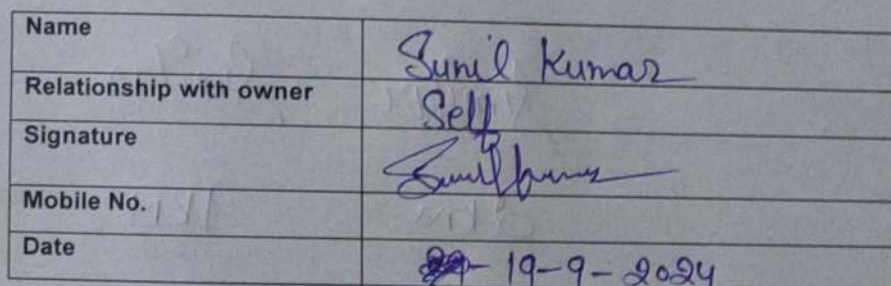 Name Sunil Kumar
Relationship with owner Self
Signature Sunil Kumar
Mobile No.
Date 19-9-2024